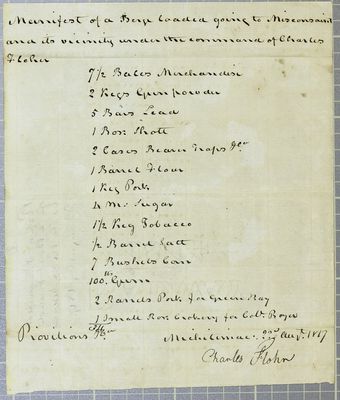 Manifest of a Barge loaded going to Misconsaint
and its vicinity under the command of Charles
Floher
7 1/2 Bales Merchandise
2 Kegs Gunpowder
5 Bars Lead
1 Box Shott
2 Cases Beaver Traps
1 Barrel Flour
1 Keg Pork
4 Mc. Sugar
1 1/2 Keg Tobacco
1/2 Barrel Salt
7 Bushels Corn
100 lb Gum
2 Barrels Pork for Green Bay
1 Small Box Crokery for Colo. Boyer
Provitions
Michilimac. 22nd Augt. 1817
Charles Flohn